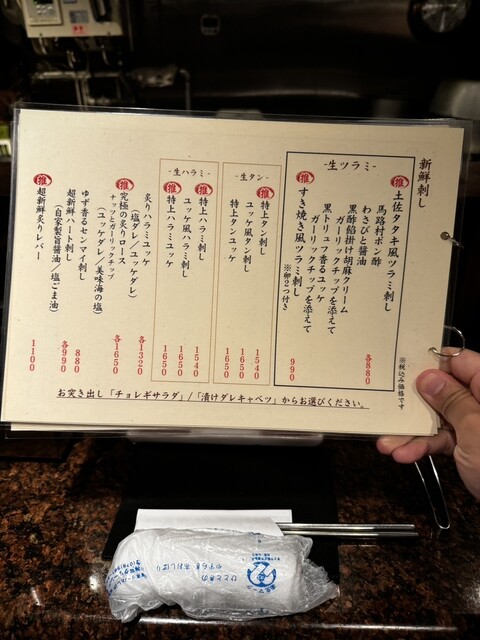 新鮮刺し
※税込み価格です
-生ツラミ-
推 土佐タタキ風ツラミ刺し
馬路村ポン酢
わさびと醤油
黒酢餡掛け胡麻クリーム
ガーリックチップを添えて
黒トリュフ香るユッケ
ガーリックチップを添えて
各880
推 すき焼き風ツラミ刺し
※卵2つ付き
990
-生タン-
推 特上タン刺し 1540
ユッケ風タン刺し 1650
特上タンユッケ 1650
-生ハラミ-
推 特上ハラミ刺し 1540
ユッケ風ハラミ刺し 1650
推 特上ハラミユッケ 1650
炙りハラミユッケ
(塩ダレ/ユッケダレ)
各1320
推 究極の炙りロース
ナッツとガーリックチップ
(ユッケダレ/美味海の塩)
各1650
ゆず香るセンマイ刺し 880
超新鮮ハート刺し
(自家製旨醤油/塩ごま油)
各990
推 超新鮮炙りレバー 1100
お突き出し「チョレギサラダ」/「漬けダレキャベツ」からお選びください。
ひとときの
やすらぎ おしぼり